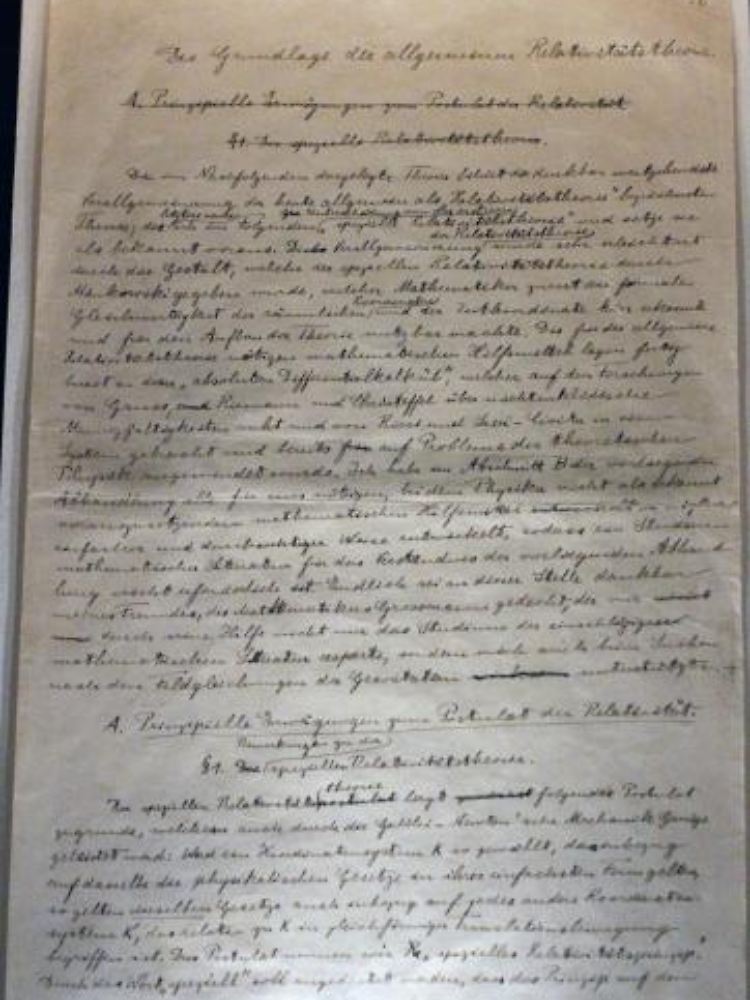 Die Grundlage der allgemeinen Relativitätstheorie.
A. Prinzipielle Erwägungen zum Postulat der Relativität
§1. Die spezielle Relativitätstheorie.
Die im Nachfolgenden dargelegte Theorie bildet die denkbar weitgehendste
Verallgemeinerung der heute allgemein als „Relativitätstheorie" bezeichneten
Theorie; die im folgenden „spezielle Relativitätstheorie" und setze sie
der Relativitätstheorie
als bekannt voraus. Die Verallgemeinerung wurde sehr erleichtert
durch die Gestalt, welche der speziellen Relativitätstheorie durch
Minkowski gegeben wurde, welcher Mathematiker zuerst die formale
Gleichwertigkeit der räumlichen und der Zeitkoordinate klar erkannte
und für den Aufbau der Theorie nutzbar machte. Die für die allgemeine
Relativitätstheorie nötigen mathematischen Hilfsmittel lagen fertig
bereit in dem „absoluten Differentialkalkül", welcher auf den Forschungen
von Gauss, und Riemann und Christoffel über nichteuklidische
Mannigfaltigkeiten ruht und von Ricci und Levi-Civita in ein
System gebracht und bereits auf Probleme der theoretischen
Physik angewendet wurde. Ich habe im Abschnitt B der vorliegenden
Abhandlung alle für uns nötigen, bei dem Physiker nicht als bekannt
vorauszusetzenden mathematischen Hilfsmittel in
einfacher und durchsichtiger Weise entwickelt, sodass ein Studium
mathematischer Literatur für das Verständnis der vorliegenden Abhand
lung nicht erforderlich ist. Endlich sei an dieser Stelle dankbar
meines Freundes, des Mathematikers Grossmann gedacht, der mir
durch seine Hilfe nicht nur das Studium der einschlägigen
mathematischen Literatur ersparte, sondern mich auch beim Suchen
nach den Feldgleichungen der Gravitation unterstützte.
A. Prinzipielle Erwägungen zum Postulat der Relativität.
Bemerkungen zu der
§1. Die speziellen Relativitätstheorie.
theorie
Der speziellen Relativitätspostulat liegt folgendes Postulat
zugrunde, welchem auch durch die Galilei-Newton'sche Mechanik Genüge
geleistet wird: Wird ein Koordinatensystem K so gewählt, dass inbezug
auf dasselbe die physikalischen Gesetze in ihrer einfachsten Form gelten,
so gelten dieselben Gesetze auch inbezug auf jedes andere Koordinaten-
system K', das relativ zu K in gleichförmiger Translationsbewegung
begriffen ist. Dies Postulat nennen wir „spezielles Relativitätsprinzip".
Durch das Wort „speziell" soll angedeutet werden, dass das Prinzip auf den